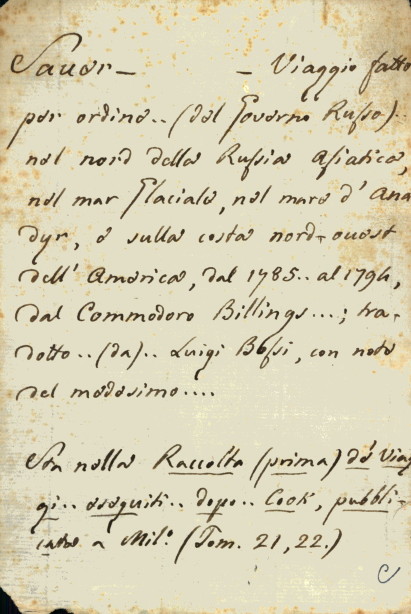 Sauer – – Viaggio fatto
per ordine.. (del Governo Russo)..
nel nord della Russia Asiatica,
nel mar Glaciale, nel mare d'Ana
dyr, e sulla costa nord-ouest
dell'America, dal 1785.. al 1794,
dal Commodoro Billings...; tra-
dotto..(da).. Luigi Bossi, con note
del medesimo....
Sta nella Raccolta (prima) de' Viag
gi.. eseguiti.. dopo.. Cook, pubbli-
cata a Mil.º (Tom. 21, 22.)
C